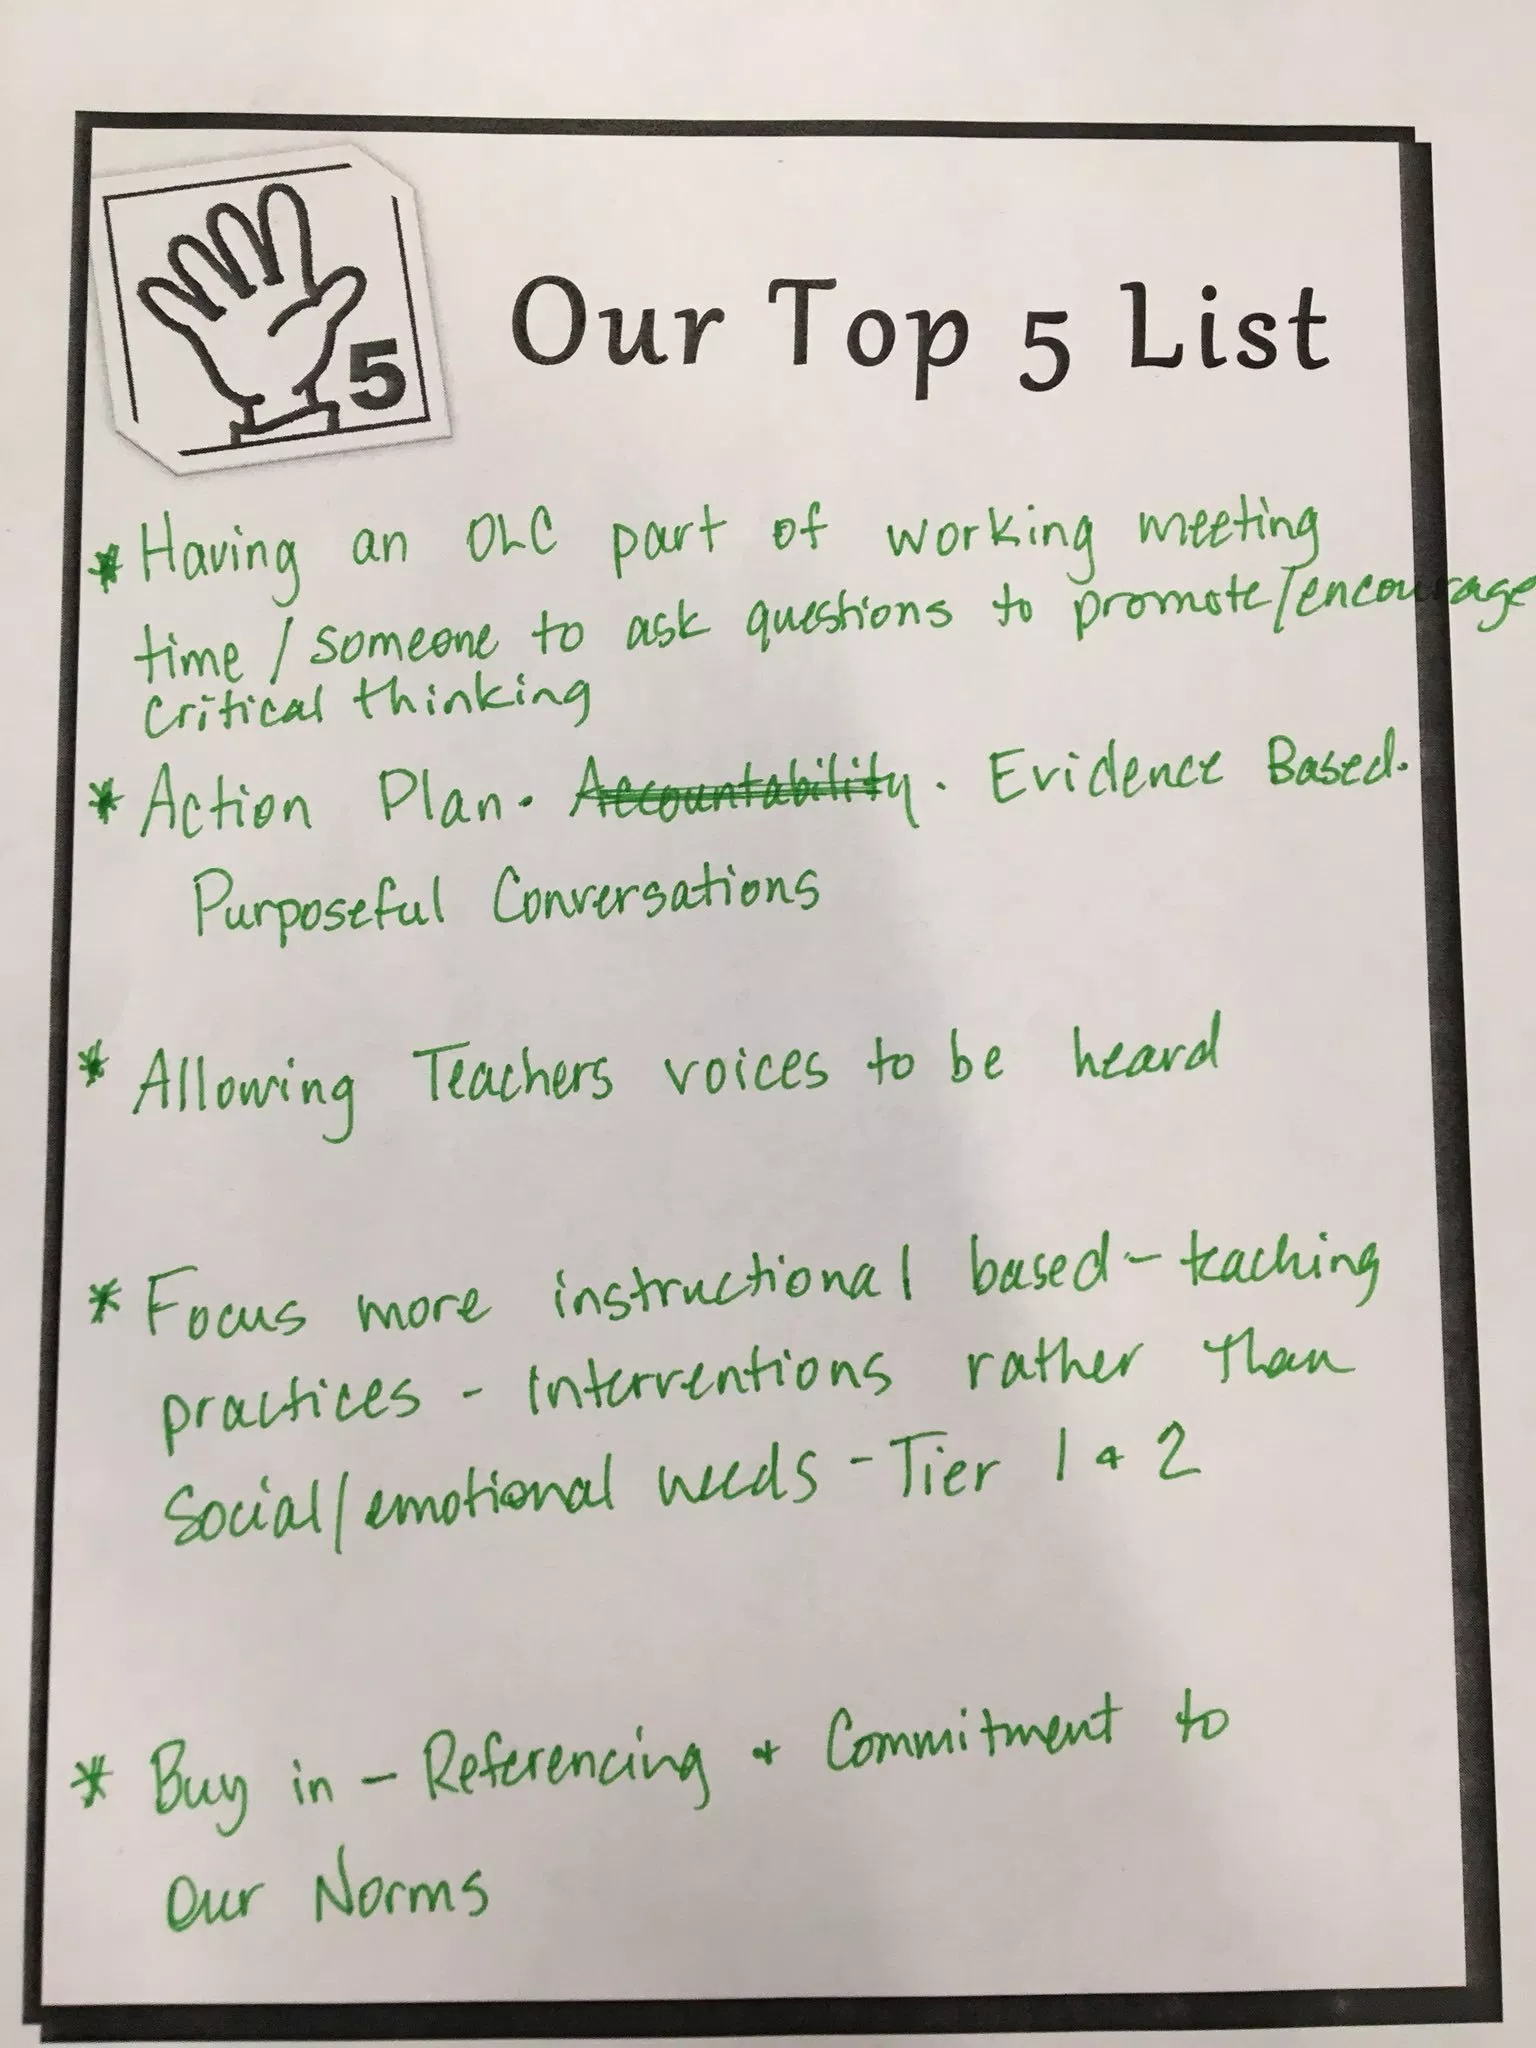 5
Our Top 5 List
* Having an OLC part of working meeting
time / someone to ask questions to promote/encourage
critical thinking
* Action Plan. Accountability. Evidence Based.
Purposeful Conversations
* Allowing Teachers voices to be heard
* Focus more instructional based - teaching
practices - interventions rather than
Social/emotional needs - Tier 1 & 2
* Buy in - Referencing & Commitment to
Our Norms